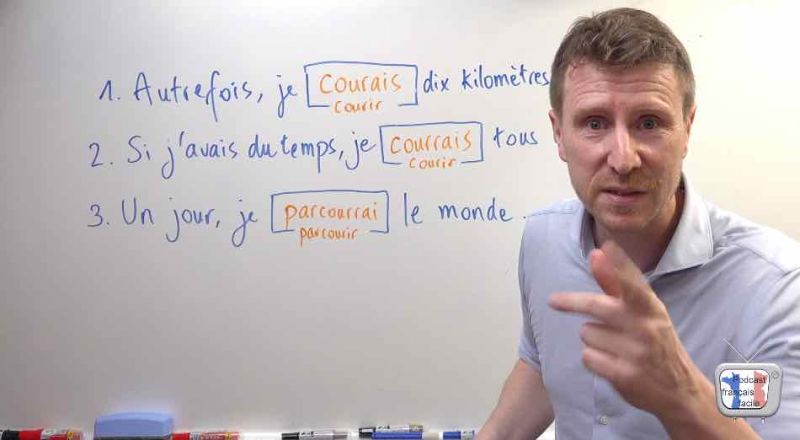 1. Autrefois, je courais dix kilomètres
courir
2. Si j'avais du temps, je courrais tous
courir
3. Un jour, je parcourrai le monde.
parcourir
Podcast
français
facile